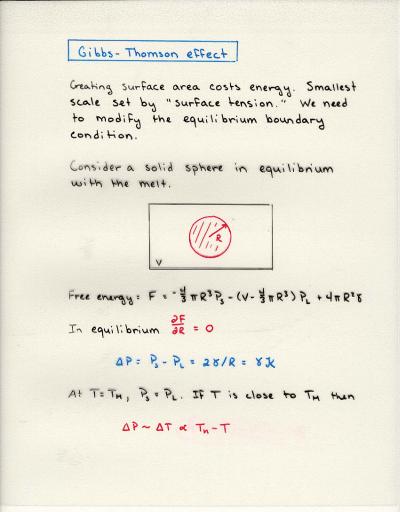 Gibbs-Thomson effect
Creating surface area costs energy. Smallest
scale set by "surface tension." We need
to modify the equilibrium boundary
condition.
Consider a solid sphere in equilibrium
with the melt.
R
V
Free energy: F = -4/3 πR³P_s - (V - 4/3 πR³) P_L + 4πR²γ
In equilibrium ∂F/∂R = 0
ΔP = P_s - P_L = 2γ/R = γK
At T = T_M, P_s = P_L. If T is close to T_M then
ΔP ~ ΔT ∝ T_M - T